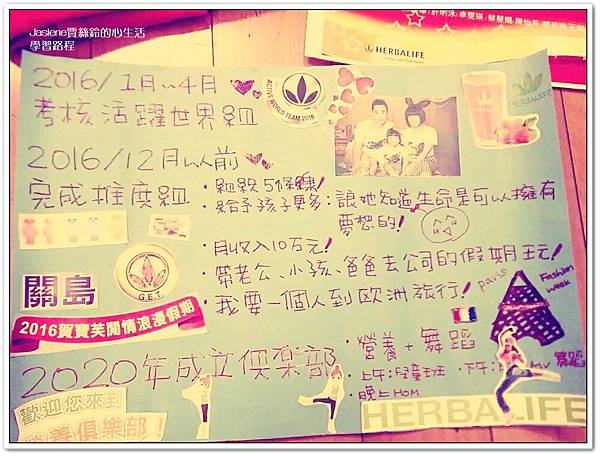 Jaslene賈絲鈴的心生活
學習路程
HERBALIFE
2016/1月~4月
考核活躍世界組
ACTIVE WORLD TEAM 2016
HERBALIFE
2016/12月以前
完成推廣組
・組織5條線!
・給予孩子更多:讓她知道生命是可以擁有
夢想的!
・月收入10万元!
・帶老公、小孩、爸爸去公司的假期玩!
・我要一個人到歐洲旅行!
paris
Fashion
week
G.E.T.
關島
2016賀寶芙閒情浪漫假期
2020年成立俱樂部
・營養+舞蹈
・上午:兒童班
・下午:
MV
舞蹈
・晚上HOM
歡迎您來到
營養俱樂部!
HERBALIFE